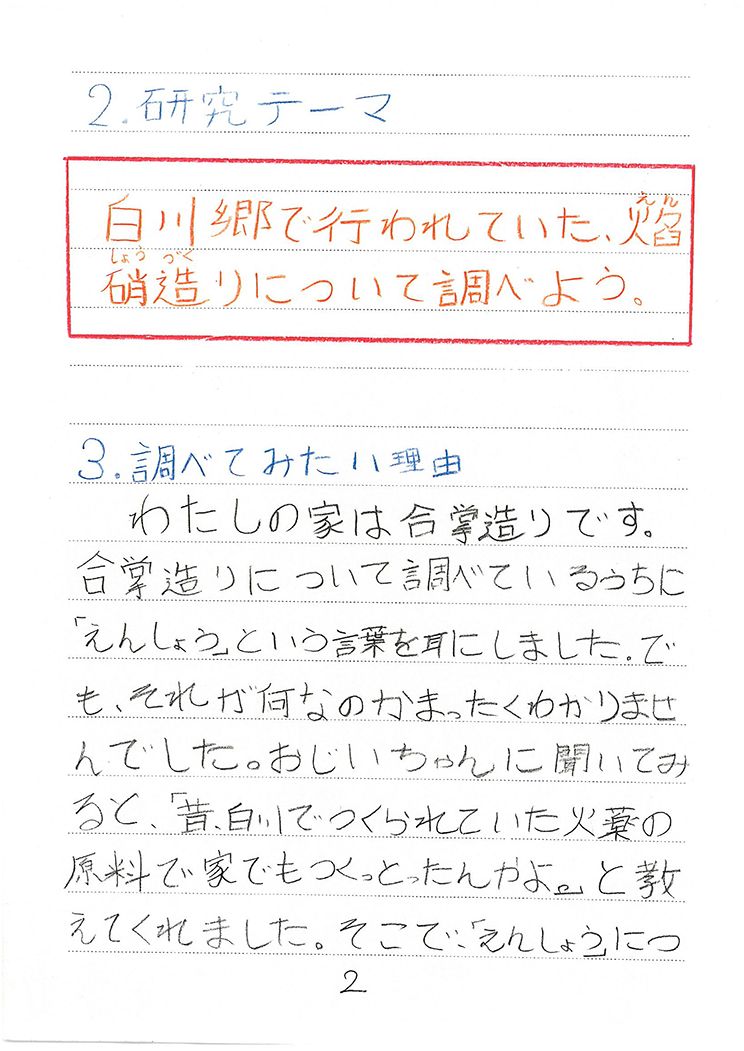 2.研究テーマ
白川郷で行われていた、焔
えん
硝造りについて調べよう。
しょう づく
3.調べてみたい理由
わたしの家は合掌造りです。
合掌造りについて調べているうちに
「えんしょう」という言葉を耳にしました。で
も、それが何なのかまったくわかりませ
んでした。おじいちゃんに聞いてみ
ると、「昔、白川でつくられていた火薬の
原料で家でもつくっとったんやよ。」と教
えてくれました。そこで、「えんしょう」につ
2